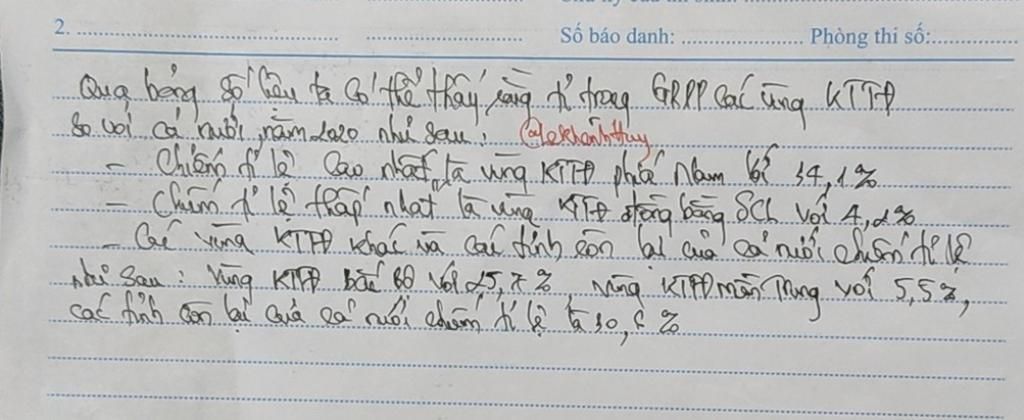 2. Số báo danh: Phòng thi số:
Qua bảng số liệu ta có thể thấy rằng tỉ trọng GRDP các vùng KTTĐ
so với cả nước năm 2020 như sau: @lekhanhhuy
- Chiếm tỉ lệ cao nhất là vùng KTTĐ phía Nam với 34,1%
- Chiếm tỉ lệ thấp nhất là vùng KTTĐ đồng bằng SCL với 4,1%
- Các vùng KTTĐ khác và các tỉnh còn lại của cả nước chiếm tỉ lệ
như sau: Vùng KTTĐ Bắc Bộ với 25,7%, vùng KTTĐ miền Trung với 5,5%,
các tỉnh còn lại của cả nước chiếm tỉ lệ là %